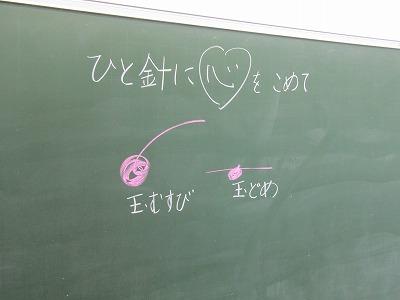 ひと針に心をこめて
玉むすび
玉どめ